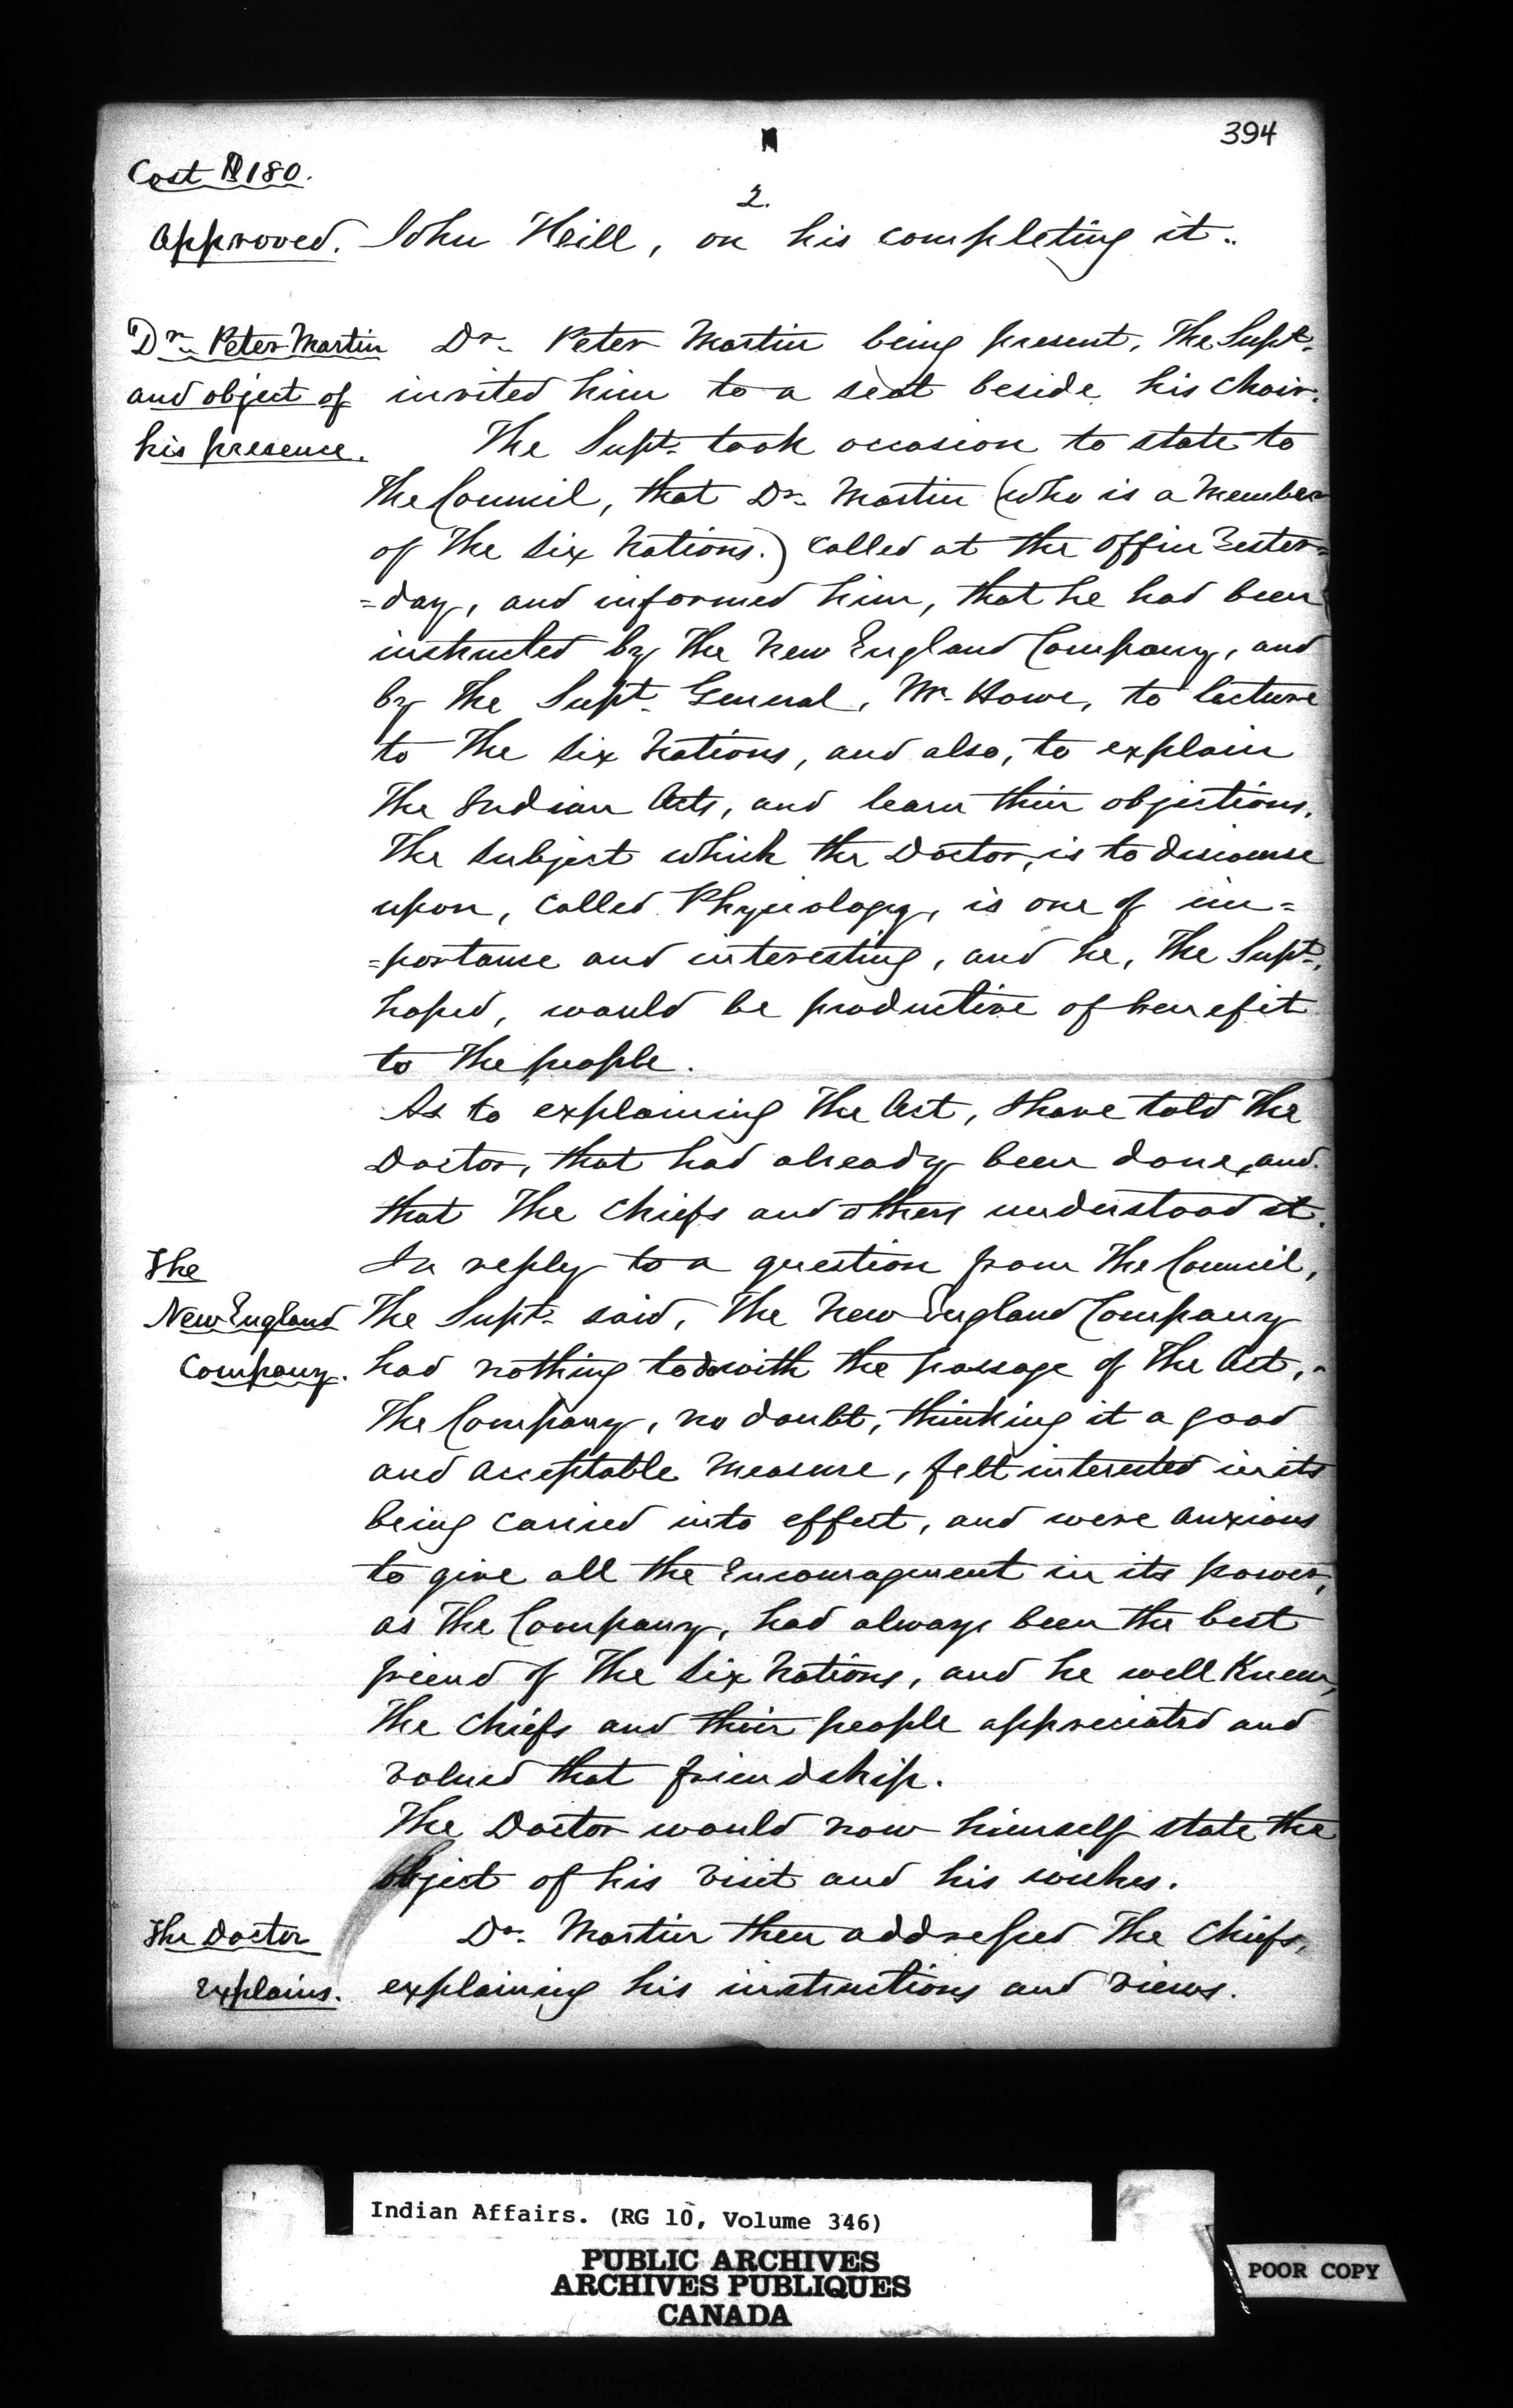 394
Cost $180.
2.
Approved. John Heill, on his completing it..
Dr. Peter Martin Dr. Peter Martin being present, The Supt.
and object of invited him to a seat beside his chair.
his presence. The Supt. took occasion to state to
The Council, that Dr. Martin (who is a Member
of The Six Nations.) called at the Office Yester=
=day, and informed him, that he had been
instructed by The New England Company, and
by The Supt. General, Mr. Howe, to lecture
to The Six Nations, and also, to explain
The Indian Acts, and learn their objections.
The Subject which the Doctor, is to discourse
upon, called Physiology, is one of im=
=portance and interesting, and he, The Supt.,
hoped, would be productive of benefit
to The people.
As to explaining The Act, I have told The
Doctor, that had already been done, and
that The Chiefs and others understood it.
The In reply to a question from The Council,
New England The Supt. said, The New England Company
Company. had nothing to do with the passage of The Act,
The Company, no doubt, thinking it a good
and acceptable Measure, felt interested in its
being carried into effect, and were Anxious
to give all the Encouragement in its power,
as The Company, had always been the best
friend of The Six Nations, and he well Knew,
The Chiefs and their people appreciated and
valued that friendship.
The Doctor would now himself state the
object of his visit and his wishes.
The Doctor Dr. Martin then addressed The Chiefs,
Explains. explaining his instructions and views.
Indian Affairs. (RG 10, Volume 346)
PUBLIC ARCHIVES
ARCHIVES PUBLIQUES
CANADA
POOR COPY